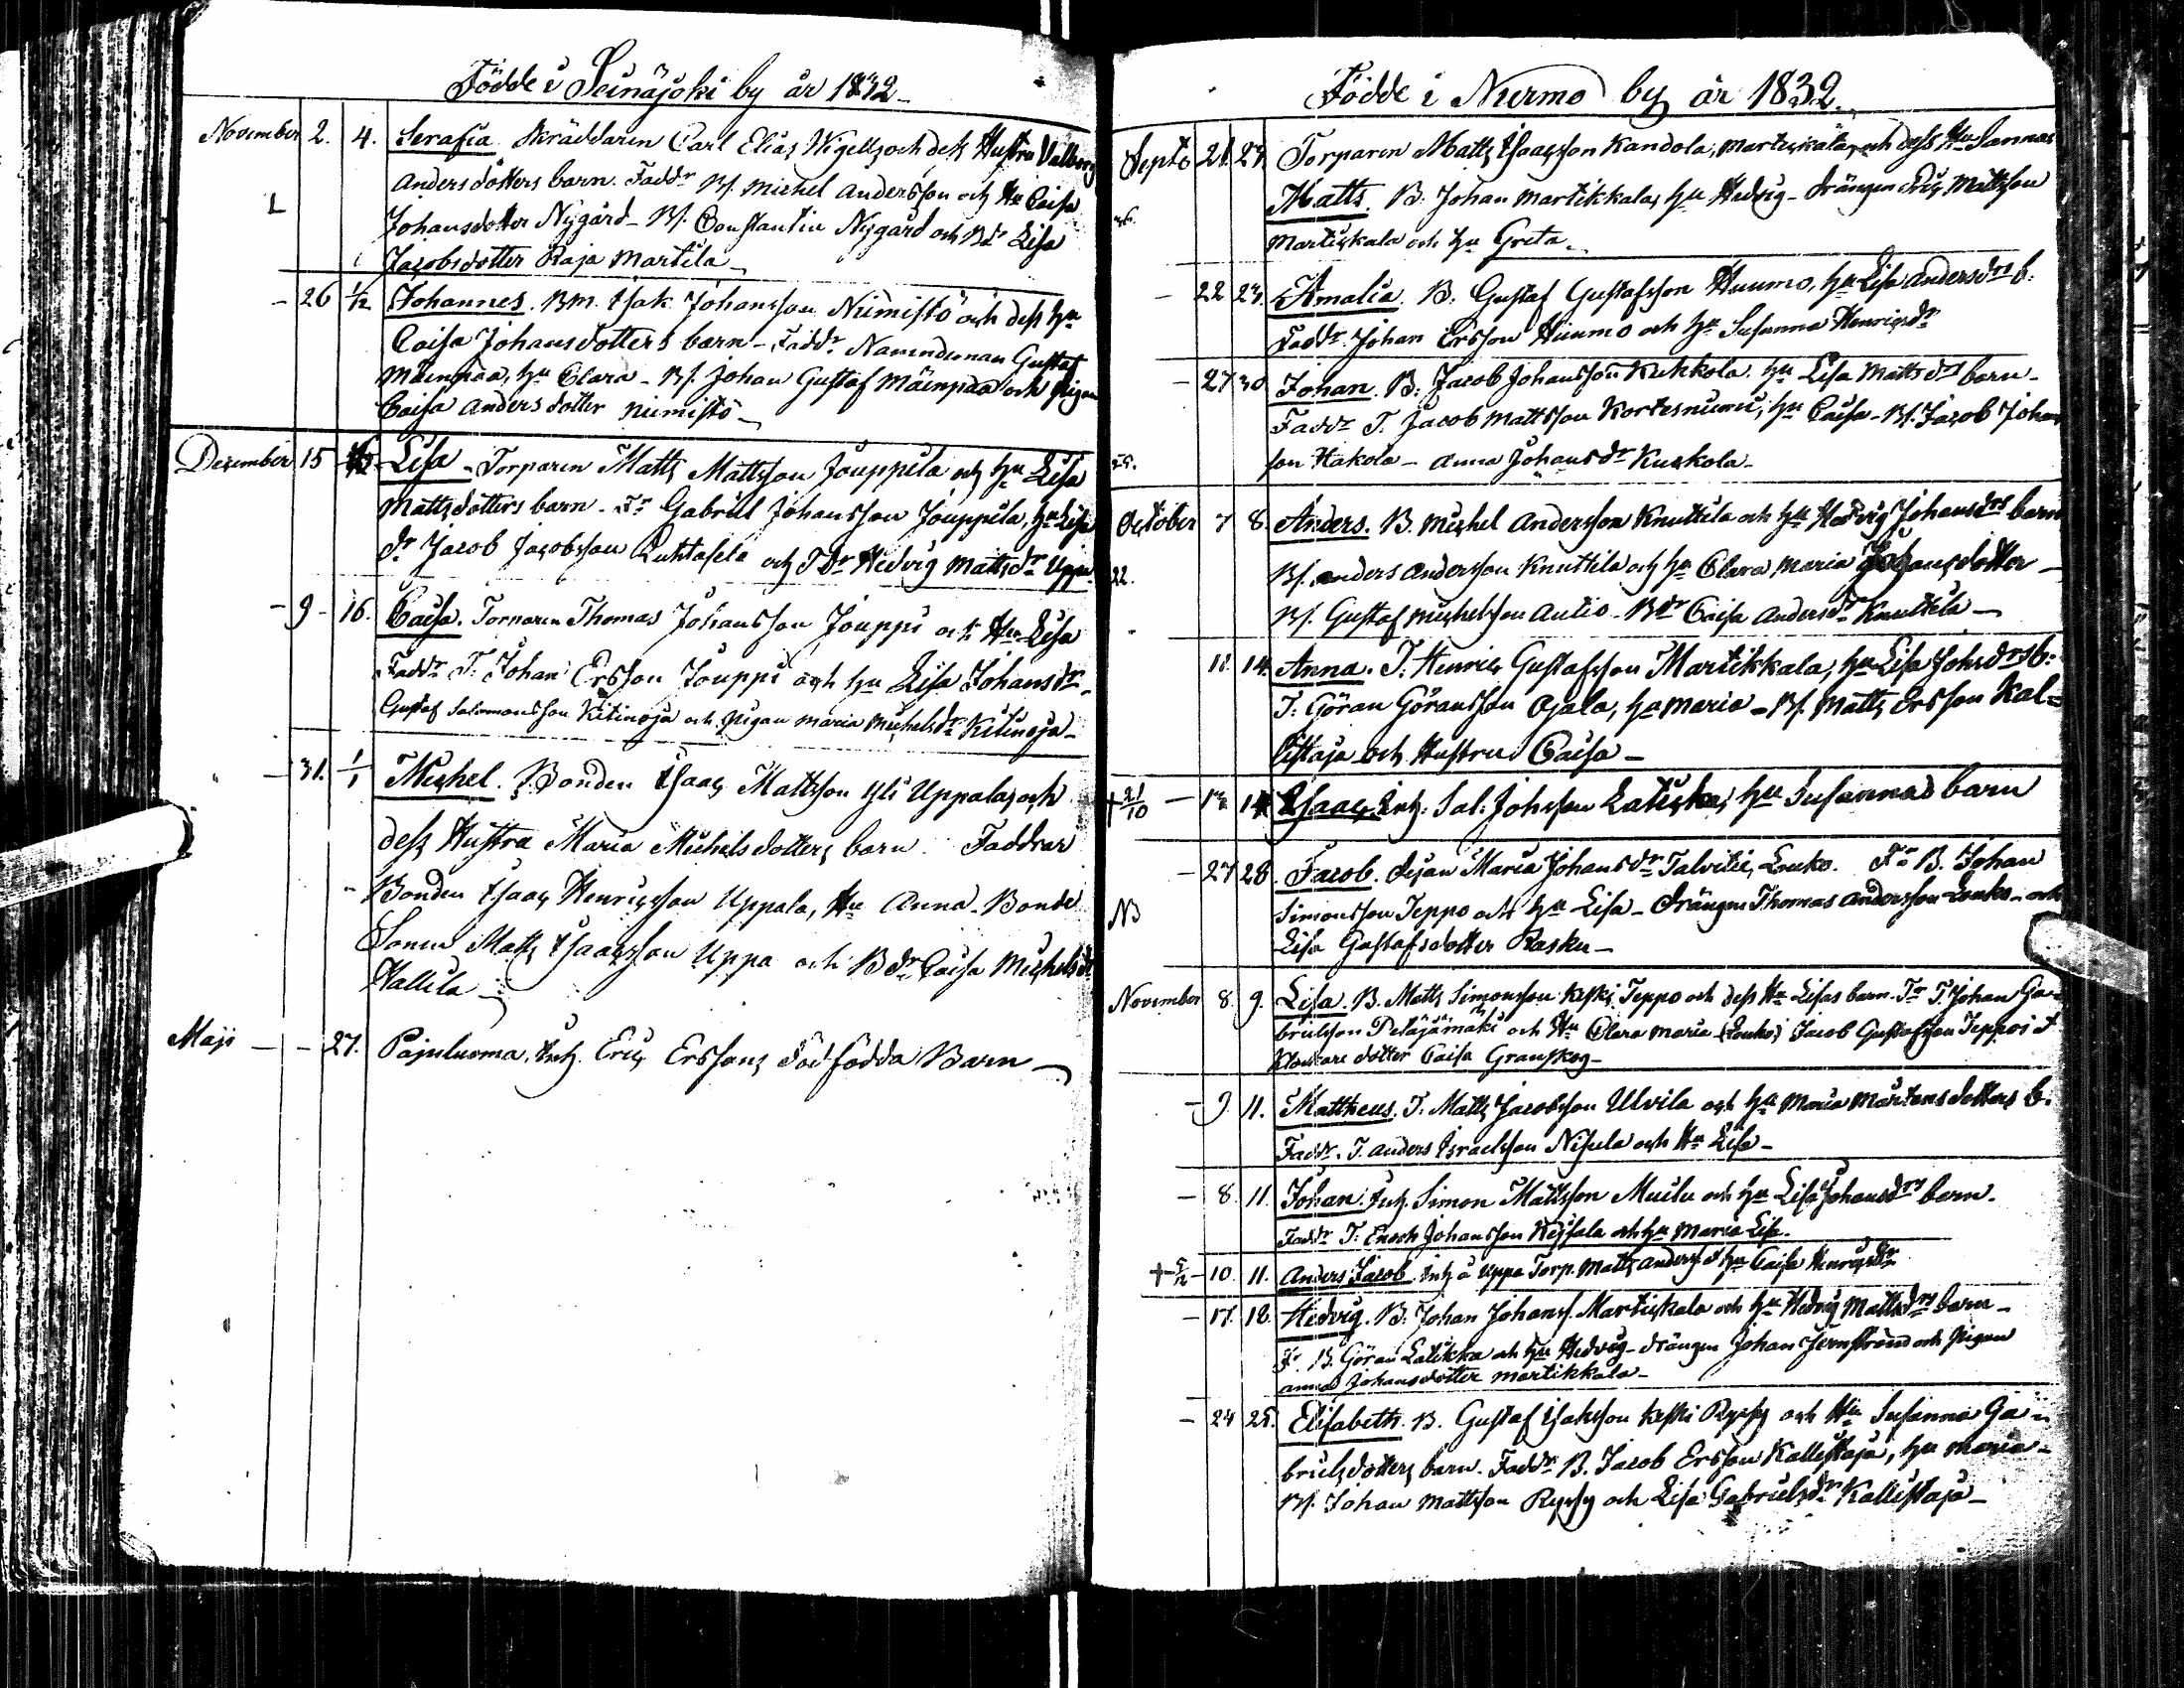 Födde i Seinäjoki by år 1832
November 2. 4. Serafia Skräddaren Carl Elias Wigell och dess Hustru Valborg
Anders dotters barn. Faddr Bs. Michel Andersson och Hu Caisa
Johansdotter Nygård - Bs. Constantin Nygård och Bdr Lisa
Jacobsdotter Raja Martila
- 26 1/12 Johannes. Bm. Isak Johansson Niemistö och dess hu
Caisa Johansdotters barn - Faddr Gustaf
Mäenpää, hu Clara - Bs. Johan Gustaf Mäenpää och pigan
Caisa Anders dotter Niemistö
December 15 Lisa - Torparen Matts Mattsson Jouppila och hu Lisa
Mattsdotters barn - Fr Gabriel Johansson Jouppila, hu Lisa
dr Jacob Jacobsson och Tdr Hedvig Mattsdr Uppa
- 9 - 16. Caisa. Torparen Thomas Johansson Jouppi och Hu Lisa
Faddr T. Johan Ersson Jouppi och hu Lisa Johansdr
Gustaf Salomonsson Kitinoja och pigan Maria Michelsdr Kitinoja
- 31. 1/1 Michel. Bonden Isaac Mattsson Yli Uppala och
dess Hustru Maria Michelsdotters barn. Faddrar
Bonden Isaac Henricsson Uppala, Hu Anna - Bonde
Sonen Matts Isaacsson Uppa och Bdr Caisa Michelsdr
Hallila
Maji - - 27. Pajuluoma, Inh. Eric Erssons död födda Barn
Födde i Nurmo by år 1832.
Septb 21. 23. Torparen Matts Isaacsson Kandola, Martikkala, och dess hu Sannas
Matts. B. Johan Martikkala, hu Hedvig - drängen Eric Mattsson
Martikkala och hu Greta
- 22 23. Amalia. B. Gustaf Gustafsson Huumo, hu Lisa Andersdrs b.
Faddr. Johan Ersson Huumo och hu Susanna Henricsdr
- 27 30 Johan. B. Jacob Johansson Kuckkola. hu Lisa Mattsdrs barn -
Faddr T. Jacob Mattsson Kortesniemi, hu Caisa - Bs. Jacob Johan
son Hakola - Anna Johansdr Kuckola -
October 7 8. Anders. B. Michel Andersson Knuttila och hu Hedvig Johansdrs barn
22. Bs. Anders Andersson Knuttila och hu Clara Maria Johansdotter -
Bs. Gustaf Michelsson Autio - Bdr Caisa Andersdr Knuttila -
11. 14. Anna. T. Henric Gustafsson Martikkala, hu Lisa Johsdrs b:
T. Göran Göransson Ojala, hu Maria - Bs. Matts Ersson Kal=
listaja och Hustru Caisa -
+ 21/10 - 13 14 Isaac. Inh. Sal. Johsson Latikka, hu Susannas barn
- 27 28. Jacob. Pigan Maria Johansdr Talvitie, Louko. Fr B. Johan
NB Simonsson Teppo och hu Lisa - Drängen Thomas Andersson Louko - och
Lisa Gustafsdotter Rasku -
November 8. 9. Lisa. B. Matts Simonsson Keski Teppo och dess Hu Lisas barn. Fr T. Johan Ga-
brielsson Petäjämäki och Hu Clara Maria (Louko) Jacob Gustafsson Teppo
Klockare dotter Caisa Granskog -
- 9 11. Mattheus. T. Matts Jacobsson Ulvila och hu Maria Mårtensdotters b.
Faddr. T. Anders Israelsson Nisula och Hu Lisa -
- 8. 11. Johan. Inh. Simon Mattsson Muilu och hu Lisa Johansdrs barn.
Faddr T. Enoch Johansson Keisala och hu Maria Lisa.
+ 5/12 - 10. 11. Anders Jacob. Inh å Uppa Torp. Matts Anderss. & hu Caisa Henricsdr
- 17. 18. Hedvig. B. Johan Johanss. Martikkala och hu Hedvig Mattsdrs barn -
Fr B. Göran Latikka och hu Hedvig - drängen Johan Jernström och Pigan
Anna Johansdotter Martikkala -
- 24 25. Elisabeth. B. Gustaf Isaksson Keski Ryssy och Hu Susanna Ga-
brielsdotters barn. Faddr. B. Jacob Ersson Kallistaja, hu Maria -
Bs. Johan Mattsson Ryssy och Lisa Gabrielsdr Kallistaja -